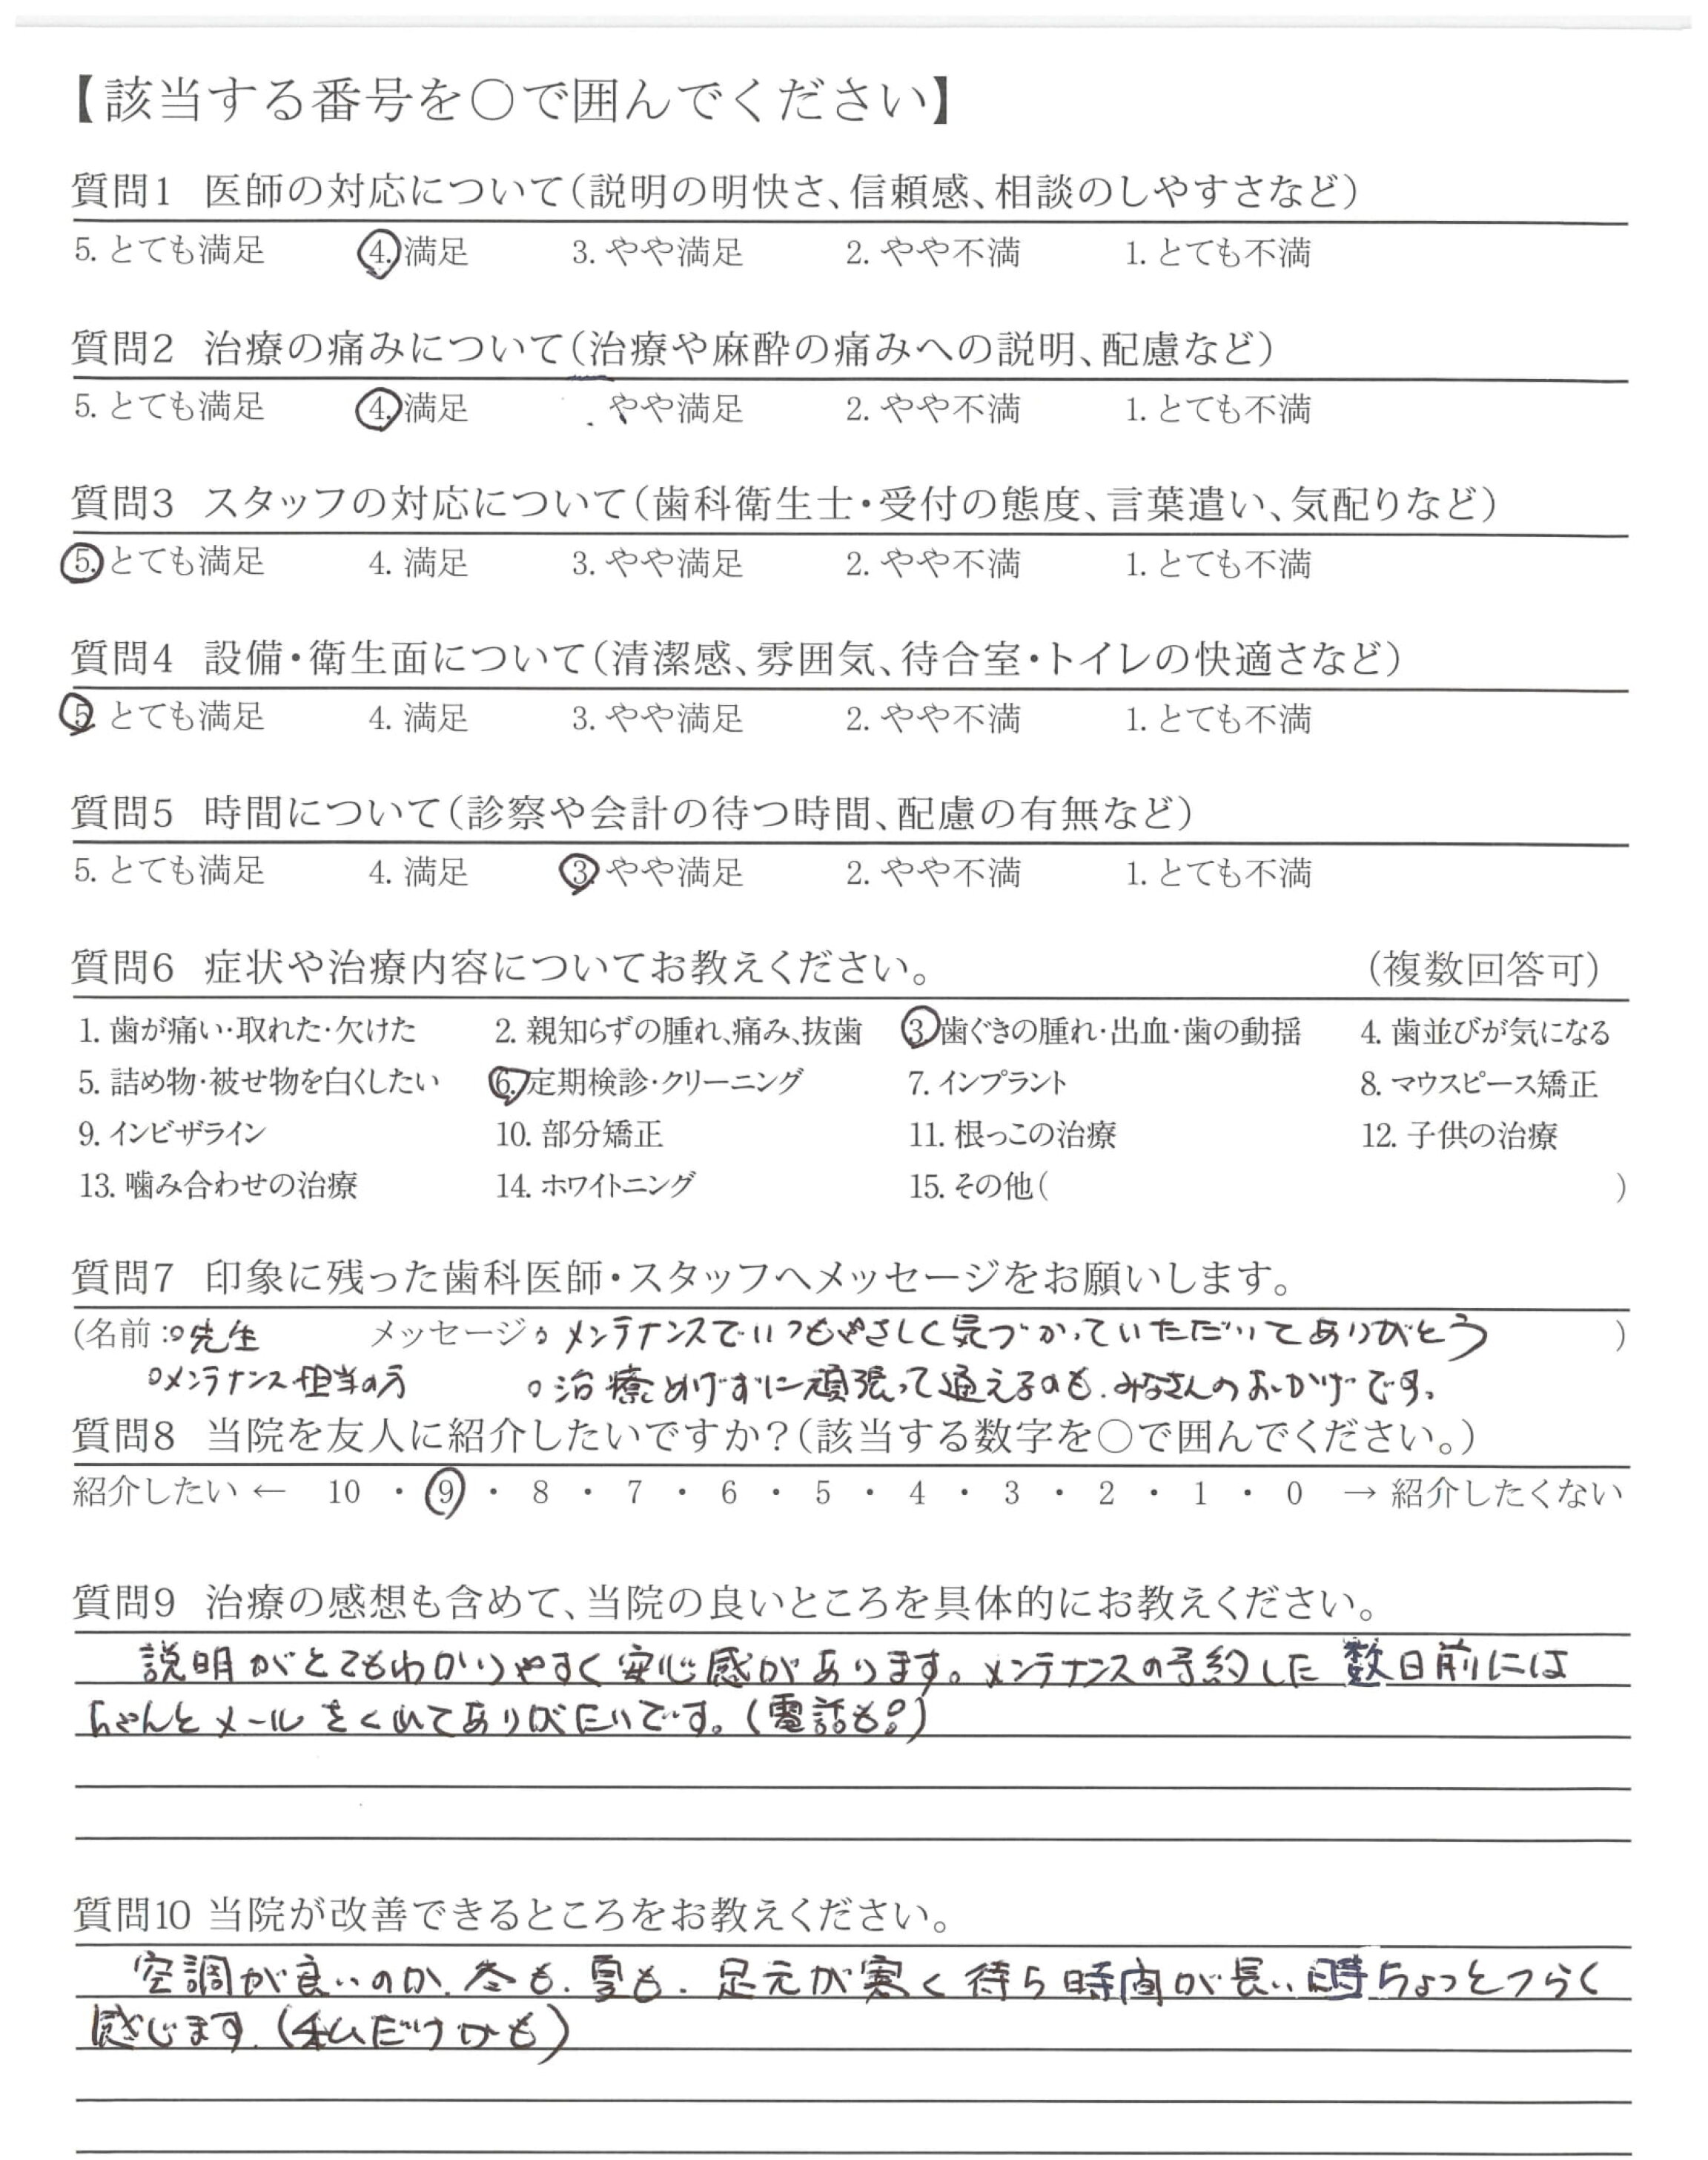 【該当する番号を○で囲んでください】
質問1 医師の対応について(説明の明快さ、信頼感、相談のしやすさなど)
5. とても満足 4. 満足 3. やや満足 2. やや不満 1. とても不満
質問2 治療の痛みについて(治療や麻酔の痛みへの説明、配慮など)
5. とても満足 4. 満足 . やや満足 2. やや不満 1. とても不満
質問3 スタッフの対応について(歯科衛生士・受付の態度、言葉遣い、気配りなど)
5. とても満足 4. 満足 3. やや満足 2. やや不満 1. とても不満
質問4 設備・衛生面について(清潔感、雰囲気、待合室・トイレの快適さなど)
5 とても満足 4. 満足 3. やや満足 2. やや不満 1. とても不満
質問5 時間について(診察や会計の待つ時間、配慮の有無など)
5. とても満足 4. 満足 3. やや満足 2. やや不満 1. とても不満
質問6 症状や治療内容についてお教えください。 (複数回答可)
1. 歯が痛い・取れた・欠けた 2. 親知らずの腫れ、痛み、抜歯 3. 歯ぐきの腫れ・出血・歯の動揺 4. 歯並びが気になる
5. 詰め物・被せ物を白くしたい 6. 定期検診・クリーニング 7. インプラント 8. マウスピース矯正
9. インビザライン 10. 部分矯正 11. 根っこの治療 12. 子供の治療
13. 噛み合わせの治療 14. ホワイトニング 15. その他( )
質問7 印象に残った歯科医師・スタッフへメッセージをお願いします。
(名前:○先生 メッセージ:○メンテナンスでいつもやさしく気づかっていただいてありがとう )
○メンテナンス担当の方 ○治療めげずに頑張って通えるのも、みなさんのおかげです。
質問8 当院を友人に紹介したいですか?(該当する数字を○で囲んでください。)
紹介したい ← 10 ・ 9 ・ 8 ・ 7 ・ 6 ・ 5 ・ 4 ・ 3 ・ 2 ・ 1 ・ 0 → 紹介したくない
質問9 治療の感想も含めて、当院の良いところを具体的にお教えください。
説明がとてもわかりやすく安心感があります。メンテナンスの予約した数日前には
ちゃんとメールをくれてありがたいです。(電話も?)
質問10 当院が改善できるところをお教えください。
空調が良いのか、冬も、夏も、足元が寒く待ち時間が長い時ちょっとつらく
感じます。(私だけかも)